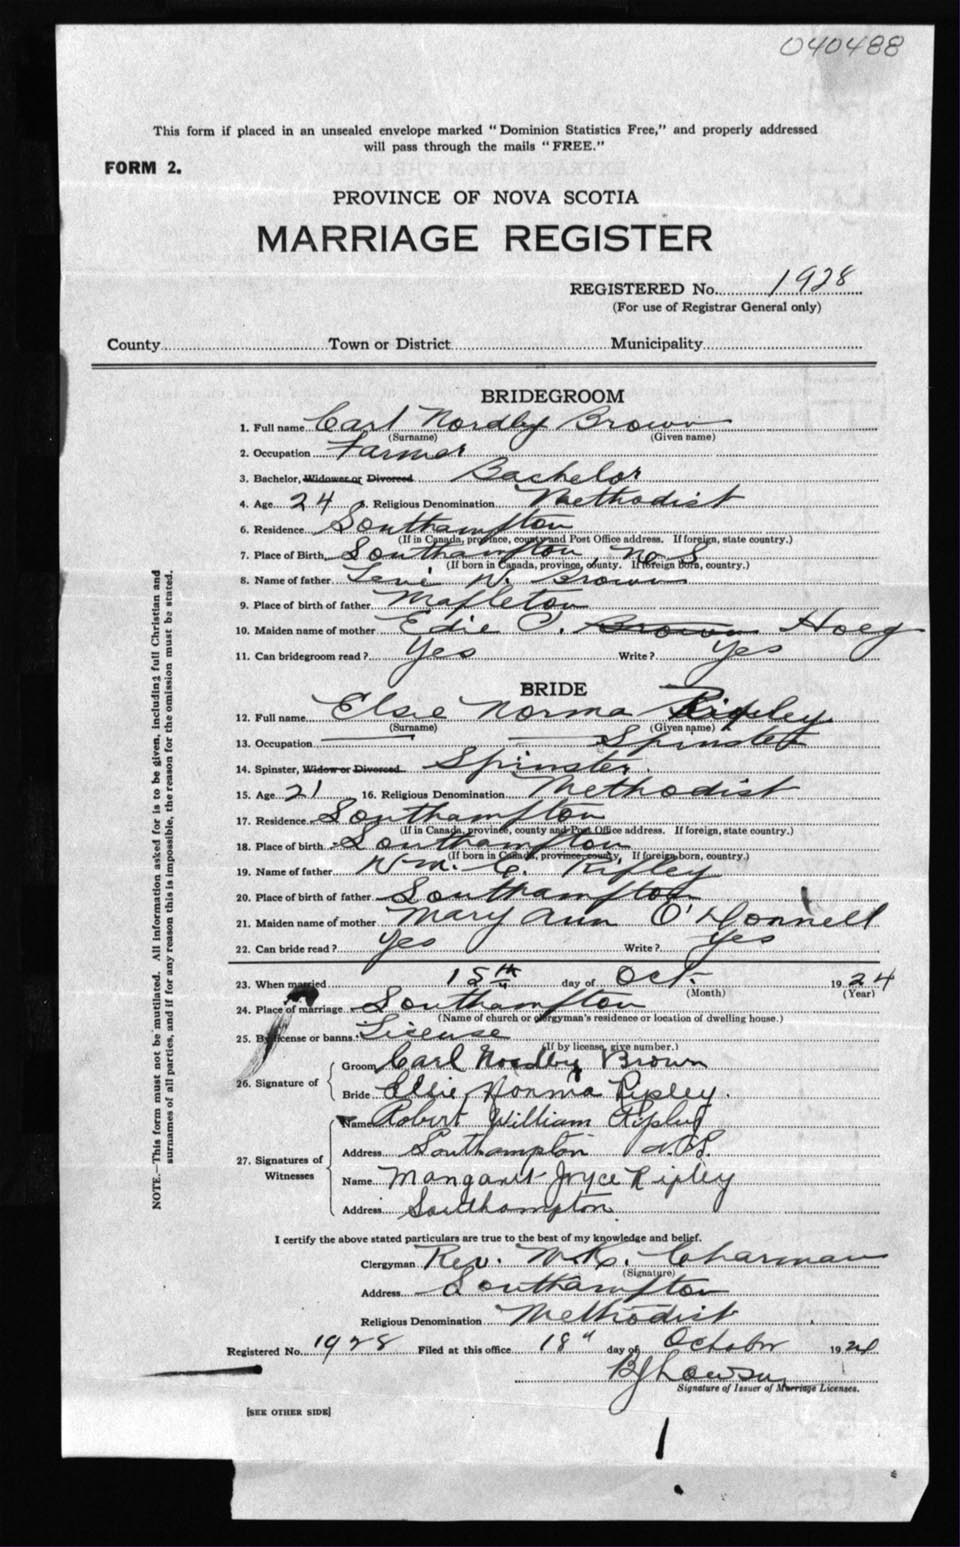 040488
This form if placed in an unsealed envelope marked "Dominion Statistics Free," and properly addressed
will pass through the mails "FREE."
FORM 2.
PROVINCE OF NOVA SCOTIA
MARRIAGE REGISTER
REGISTERED No. 1928
(For use of Registrar General only)
County Town or District Municipality
BRIDEGROOM
1. Full name Carl Nordby Brown
(Surname) (Given name)
2. Occupation Farmer
3. Bachelor, Widower or Divorced Bachelor
4. Age 24 5. Religious Denomination Methodist
6. Residence Southampton
(If in Canada, province, county and Post Office address. If foreign, state country.)
7. Place of Birth Southampton, No S
(If born in Canada, province, county. If foreign born, country.)
8. Name of father Levi W. Brown
9. Place of birth of father Mapleton
10. Maiden name of mother Edie P. Brown Hoeg
11. Can bridegroom read? Yes Write? Yes
BRIDE
12. Full name Elsie Norma Ripley
(Surname) (Given name)
13. Occupation Spinster
14. Spinster, Widow or Divorced Spinster.
15. Age 21 16. Religious Denomination Methodist
17. Residence Southampton
(If in Canada, province, county and Post Office address. If foreign, state country.)
18. Place of birth Southampton
(If born in Canada, province, county, If foreign born, country.)
19. Name of father Wm. C. Ripley
20. Place of birth of father Southampton
21. Maiden name of mother Mary Ann O'Donnell
22. Can bride read? Yes Write? Yes
23. When married 15th day of Oct. 1924
(Month) (Year)
24. Place of marriage Southampton
(Name of church or clergyman's residence or location of dwelling house.)
25. By license or banns License
(If by license, give number.)
26. Signature of
Groom Carl Nordby Brown
Bride Elsie Norma Ripley.
27. Signatures of Witnesses
Name Robert William Ripley
Address Southampton N.S.
Name Margaret Joyce Ripley
Address Southampton
I certify the above stated particulars are true to the best of my knowledge and belief.
Clergyman Rev. W. K. Charman
(Signature)
Address Southampton
Religious Denomination Methodist
Registered No. 1928 Filed at this office 18" day of October 1924
Signature of Issuer of Marriage Licenses.
[SEE OTHER SIDE]
NOTE.—This form must not be mutilated. All information asked for is to be given, including full Christian and
surnames of all parties, and if for any reason this is impossible, the reason for the omission must be stated.